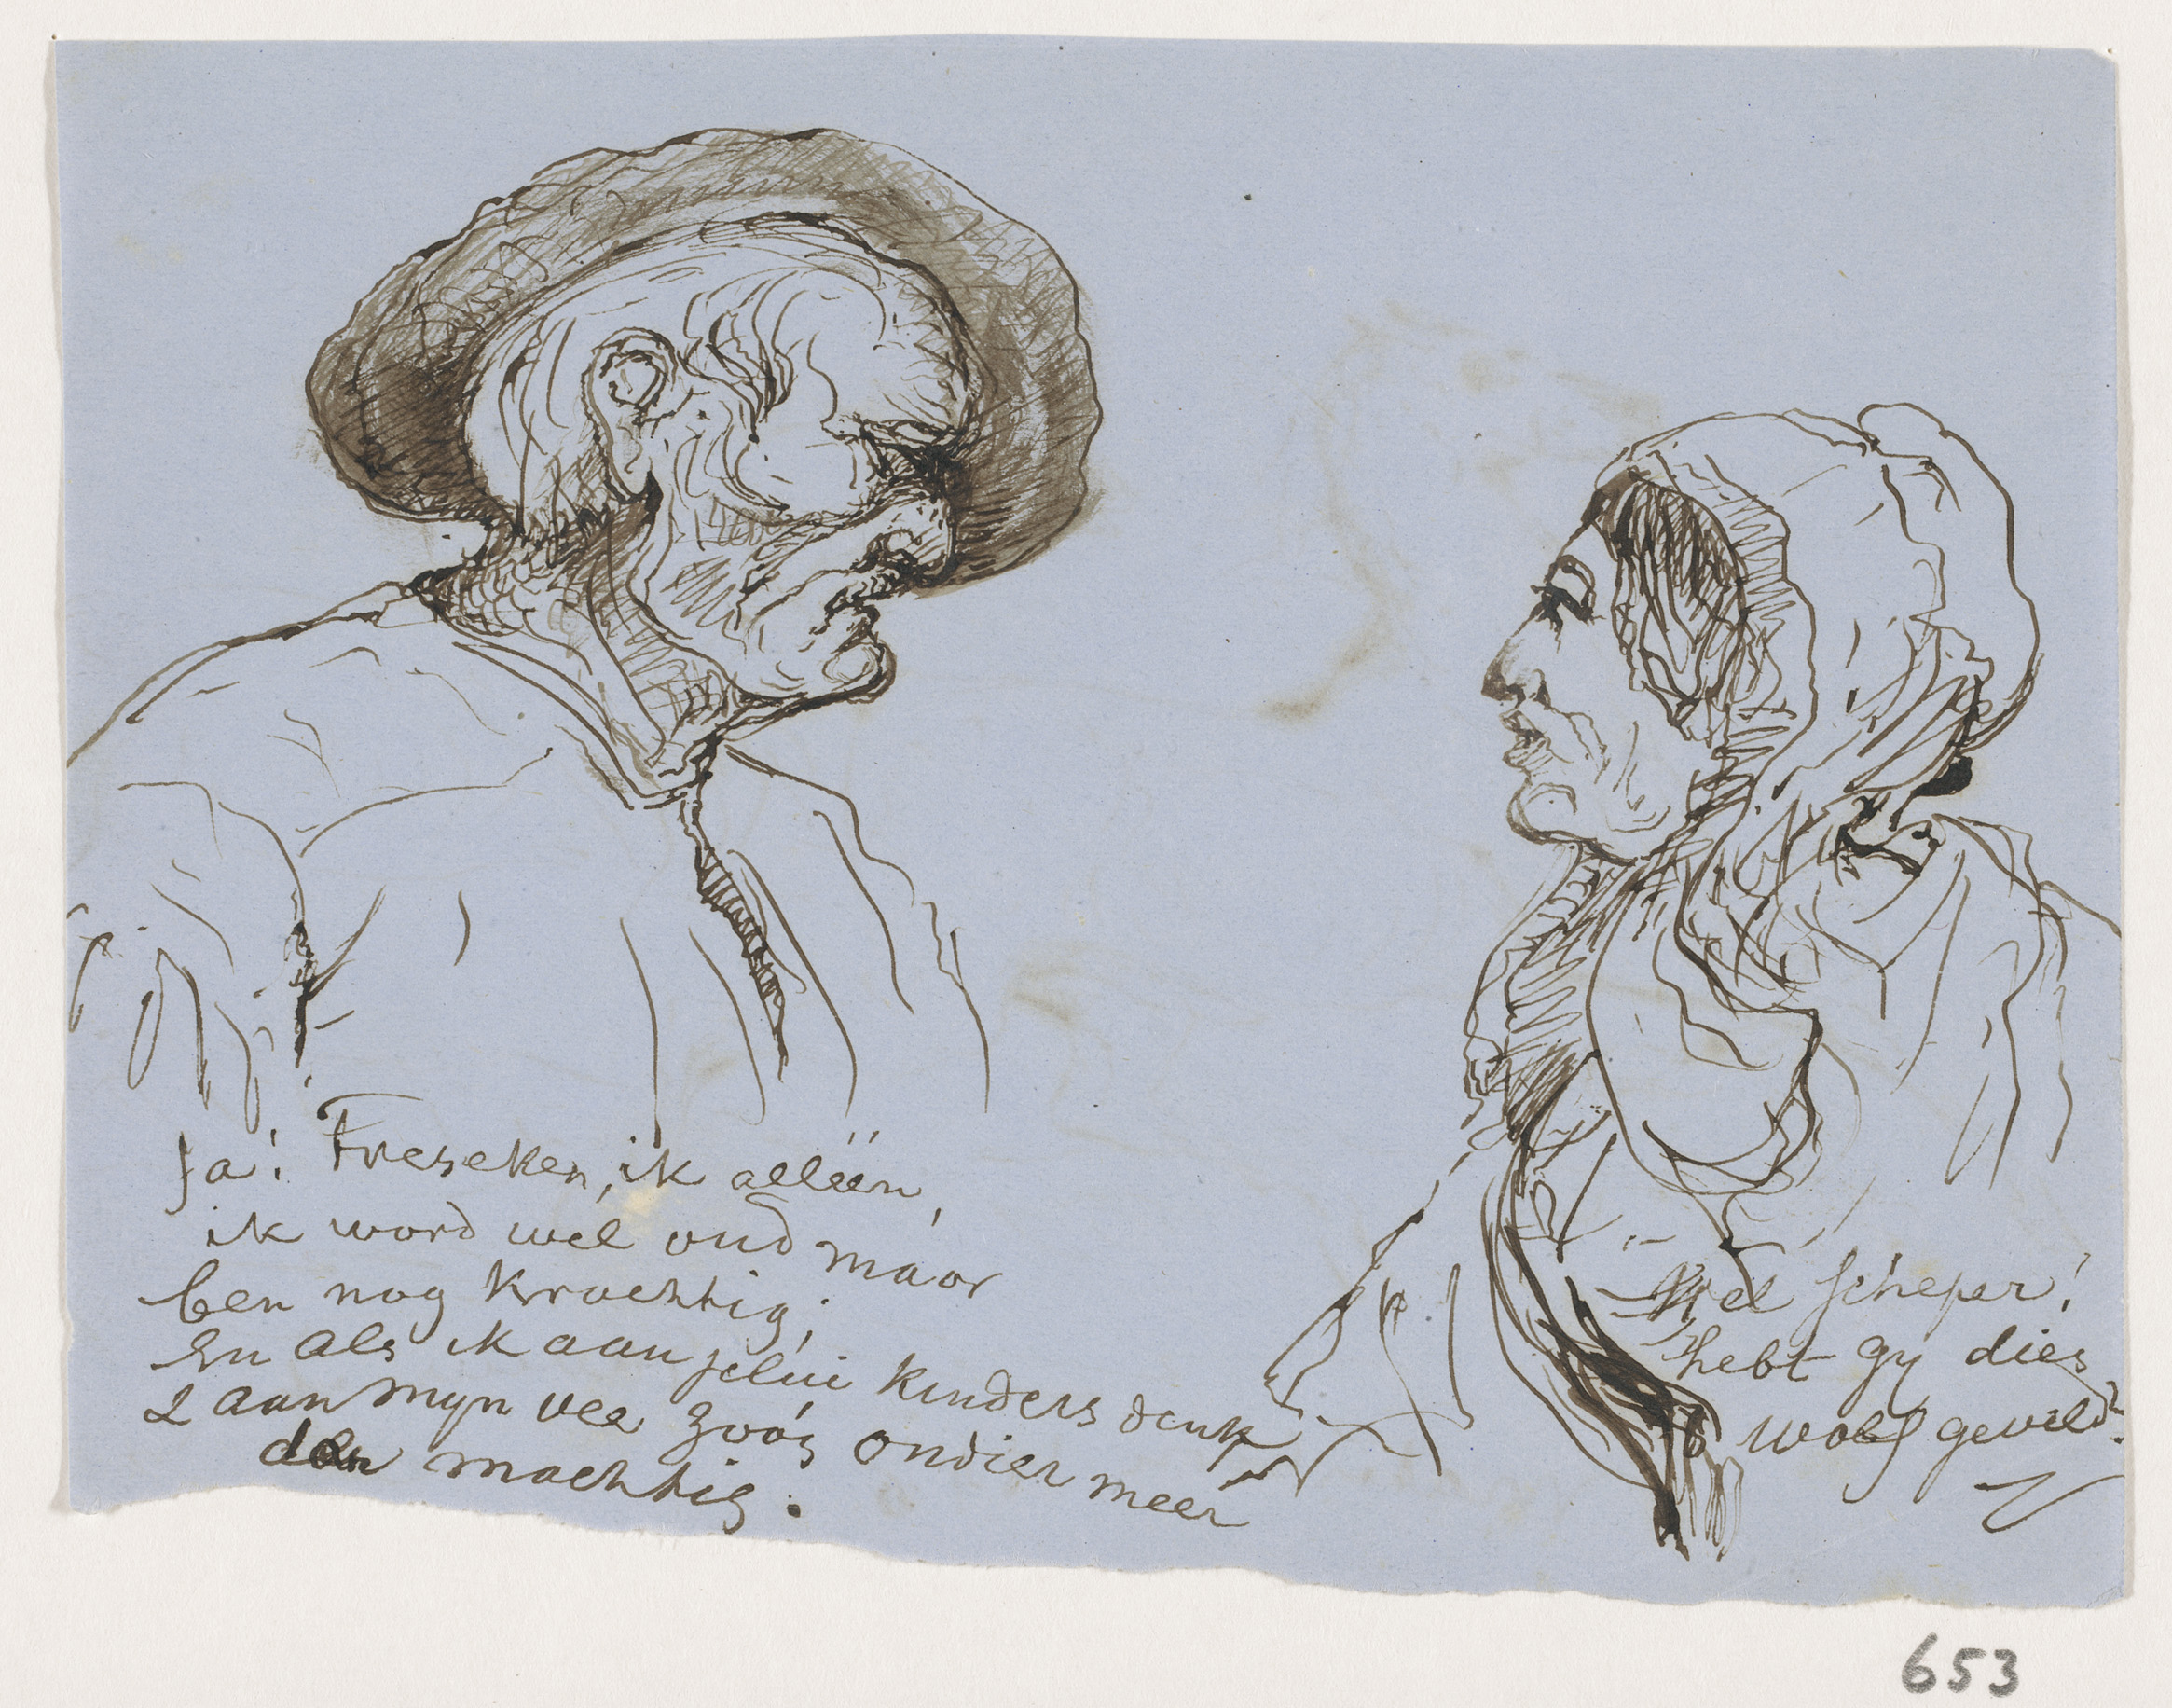 Ja! Freseken, ik alléén,
ik word wel oud maar
ben nog krachtig;
En als ik aan jelui kinders denk
& aan myn vee zóó'n ondier meer
dan machtig.
Wel scheper!
hebt gy dies
wolf geveld?
653